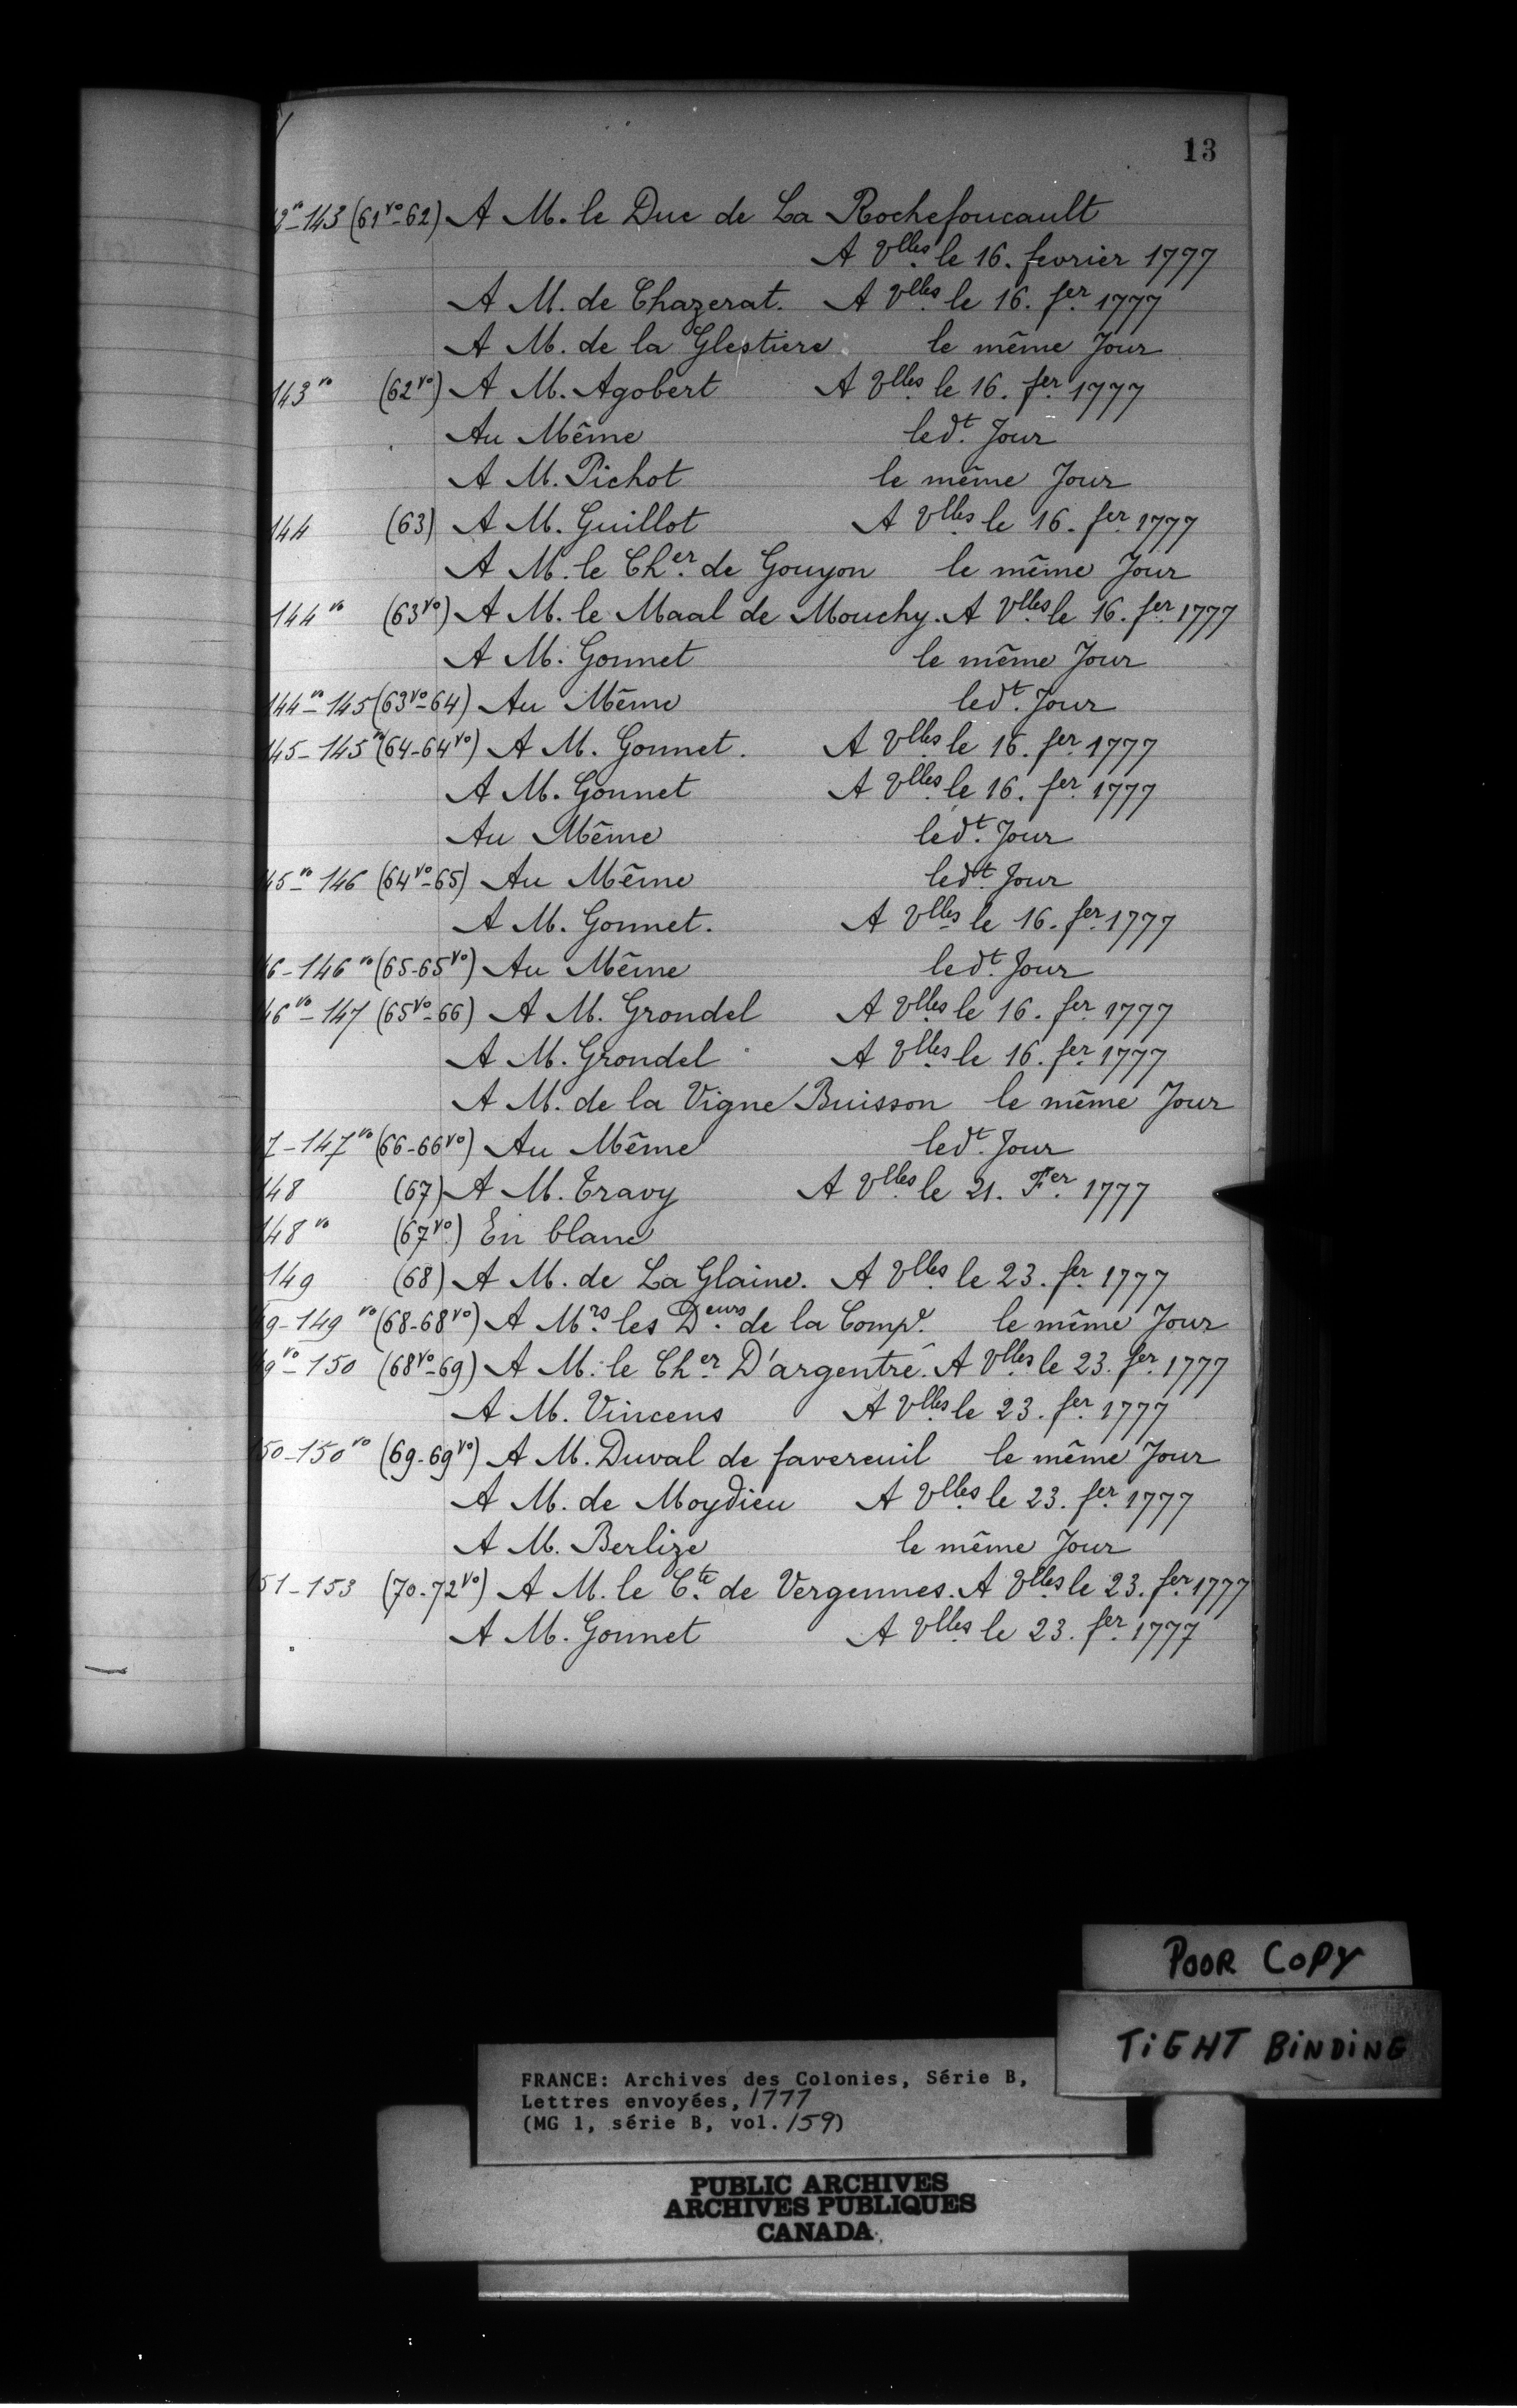 13
2vo-143 (61vo-62) A M. le Duc de La Rochefoucault
A Vlles le 16. fevrier 1777
A M. de Chazerat. A Vlles le 16. fer 1777
A M. de la Glestiere. le même Jour
143vo (62vo) A M. Agobert A Vlles le 16. fer 1777
Au Même ledt. Jour
A M. Pichot le même Jour
144 (63) A M. Guillot A Vlles le 16. fer 1777
A M. le Cher. de Gouyon le même Jour
144vo (63vo) A M. le Maal de Mouchy. A Vlles le 16. fer 1777
A M. Gonnet le même Jour
144vo-145 (63vo-64) Au Même ledt. Jour
45-145vo (64-64vo) A M. Gonnet. A Vlles le 16. fer 1777
A M. Gonnet A Vlles le 16. fer 1777
Au Même ledt. Jour
45vo-146 (64vo-65) Au Même ledt. Jour
A M. Gonnet. A Vlles le 16. fer 1777
6-146vo (65-65vo) Au Même ledt. Jour
46vo-147 (65vo-66) A M. Grondel A Vlles le 16. fer 1777
A M. Grondel A Vlles le 16. fer 1777
A M. de la Vigne Buisson le même Jour
7-147vo (66-66vo) Au Même ledt. Jour
148 (67) A M. Travy A Vlles le 21. Fer 1777
148vo (67vo) En blanc
149 (68) A M. de La Glaine. A Vlles le 23. fer 1777
9-149vo (68-68vo) A Mrs les Deurs. de la Compe. le même Jour
9vo-150 (68vo-69) A M. le Cher D'argentré. A Vlles le 23. fer 1777
A M. Vincens A Vlles le 23. fer 1777
50-150vo (69-69vo) A M. Duval de favereuil le même Jour
A M. de Moydieu A Vlles le 23. fer 1777
A M. Berlize le même Jour
51-153 (70-72vo) A M. le Cte. de Vergennes. A Vlles le 23. fer 1777
A M. Gonnet A Vlles le 23. fer 1777
POOR COPY
TiGHT BiNDiNG
FRANCE: Archives des Colonies, Série B,
Lettres envoyées, 1777
(MG 1, série B, vol. 159)
PUBLIC ARCHIVES
ARCHIVES PUBLIQUES
CANADA